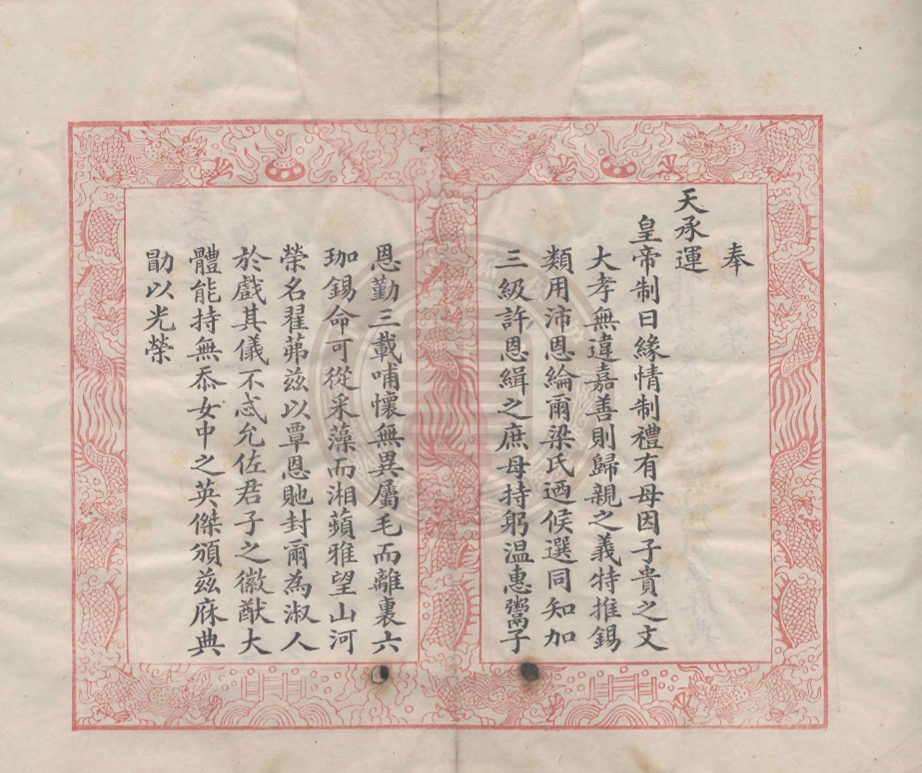 奉
天承運
皇帝制曰緣情制禮有母因子貴之文
大孝無違嘉善則歸親之義特推錫
類用沛恩綸爾梁氏迺候選同知加
三級許恩緝之庶母持躬溫惠鬻子
恩勤三載哺懷無異屬毛而離裏六
珈錫命可從采藻而湘蘋雅望山河
榮名翟茀兹以覃恩貤封爾為淑人
於戲其儀不忒允佐君子之徽猷大
體能持無忝女中之英傑頒兹庥典
勖以光榮